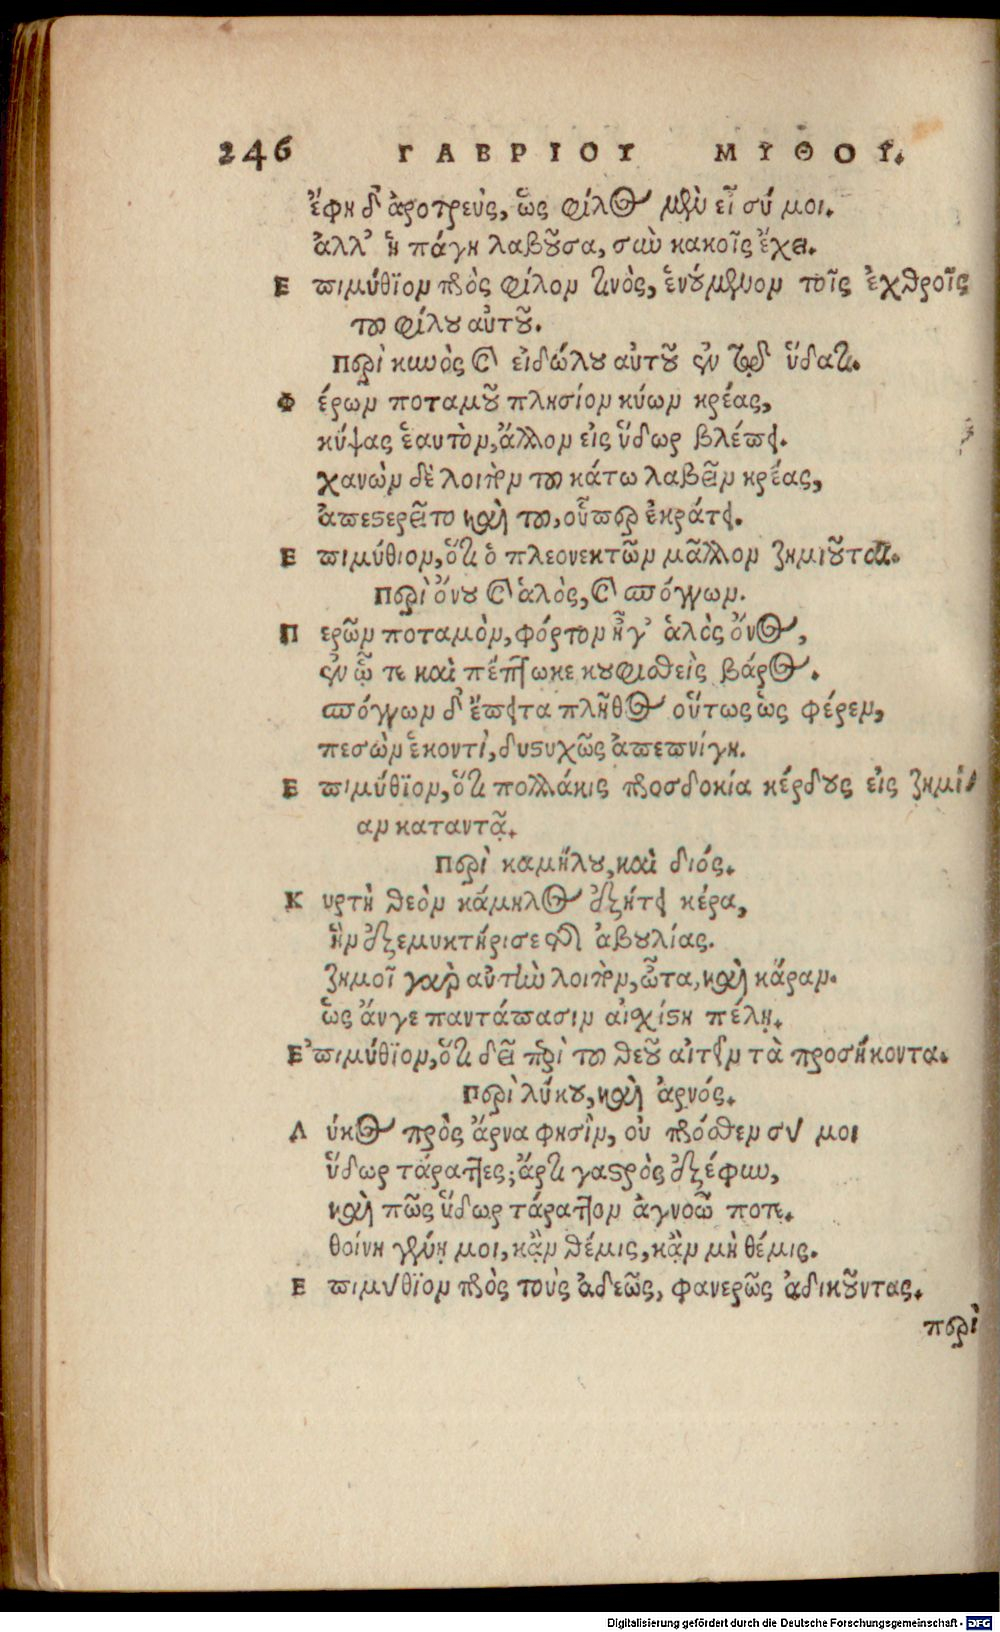 246 ΓΑΒΡΙΟΥ ΜΥΘΟΥ.
ἔφη δ' ἀροτρεὺς, ὡς φίλος μὲν εἶ σύ μοι.
ἀλλ' ἡ πάγη λαβοῦσα, σὺν κακοῖς ἔχει.
Ἐπιμύθϊον πρὸς φίλον τινὸς, ἑνούμενον τοῖς ἐχθροῖς
τοῦ φίλου αὐτοῦ.
Περὶ κυνὸς καὶ εἰδώλου αὐτοῦ ἐν τῷ ὕδατι.
Φέρων ποταμοῦ πλησίον κύων κρέας,
κύψας ἑαυτὸν, ἄλλον εἰς ὕδωρ βλέπει.
χανὼν δὲ λοιπὸν τοῦ κάτω λαβεῖν κρέας,
ἀπεστερεῖτο καὶ τοῦ, οὗπερ ἐκράτει.
Ἐπιμύθιον, ὅτι ὁ πλεονεκτῶν μᾶλλον ζημιοῦται.
Περὶ ὄνου καὶ ἁλὸς, καὶ σπόγγων.
Περῶν ποταμὸν, φόρτον ἦγ' ἁλὸς ὄνος,
ἐν ᾧ τε καὶ πέπτωκε κουφισθεὶς βάρος.
σπόγγων δ' ἔπειτα πλῆθος οὕτως ὡς φέρεν,
πεσὼν ἑκοντὶ, δυστυχῶς ἀπεπνίγη.
Ἐπιμύθϊον, ὅτι πολλάκις προσδοκία κέρδους εἰς ζημί-
αν καταντᾷ.
Περὶ καμήλου, καὶ διός.
Κυρτὴ θεὸν κάμηλος ἐξῄτει κέρα,
ἣν ἐξεμυκτήρισε τῆς ἀβουλίας.
ζημοῖ γὰρ αὐτὴν λοιπὸν, ὦτα, καὶ κάραν.
ὡς ἄνγε παντάπασιν αἰσχίστη πέλῃ.
Ἐπιμύθϊον, ὅτι δεῖ περὶ τοῦ θεοῦ αἰτεῖν τὰ προσήκοντα.
Περὶ λύκου, καὶ ἀρνός.
Λύκος πρὸς ἄρνα φησὶν, οὐ πρόσθεν σύ μοι
ὕδωρ τάραττες; ἄρτι γαστρὸς ἐξέφυν,
καὶ πῶς ὕδωρ τάραττον ἀγνοῶ ποτε.
θοίνη γένῃ μοι, κἂν θέμις, κἂν μὴ θέμις.
Ἐπιμύθϊον πρὸς τοὺς ἀδεῶς, φανερῶς ἀδικοῦντας.
περὶ
Digitalisierung gefördert durch die Deutsche Forschungsgemeinschaft - DFG